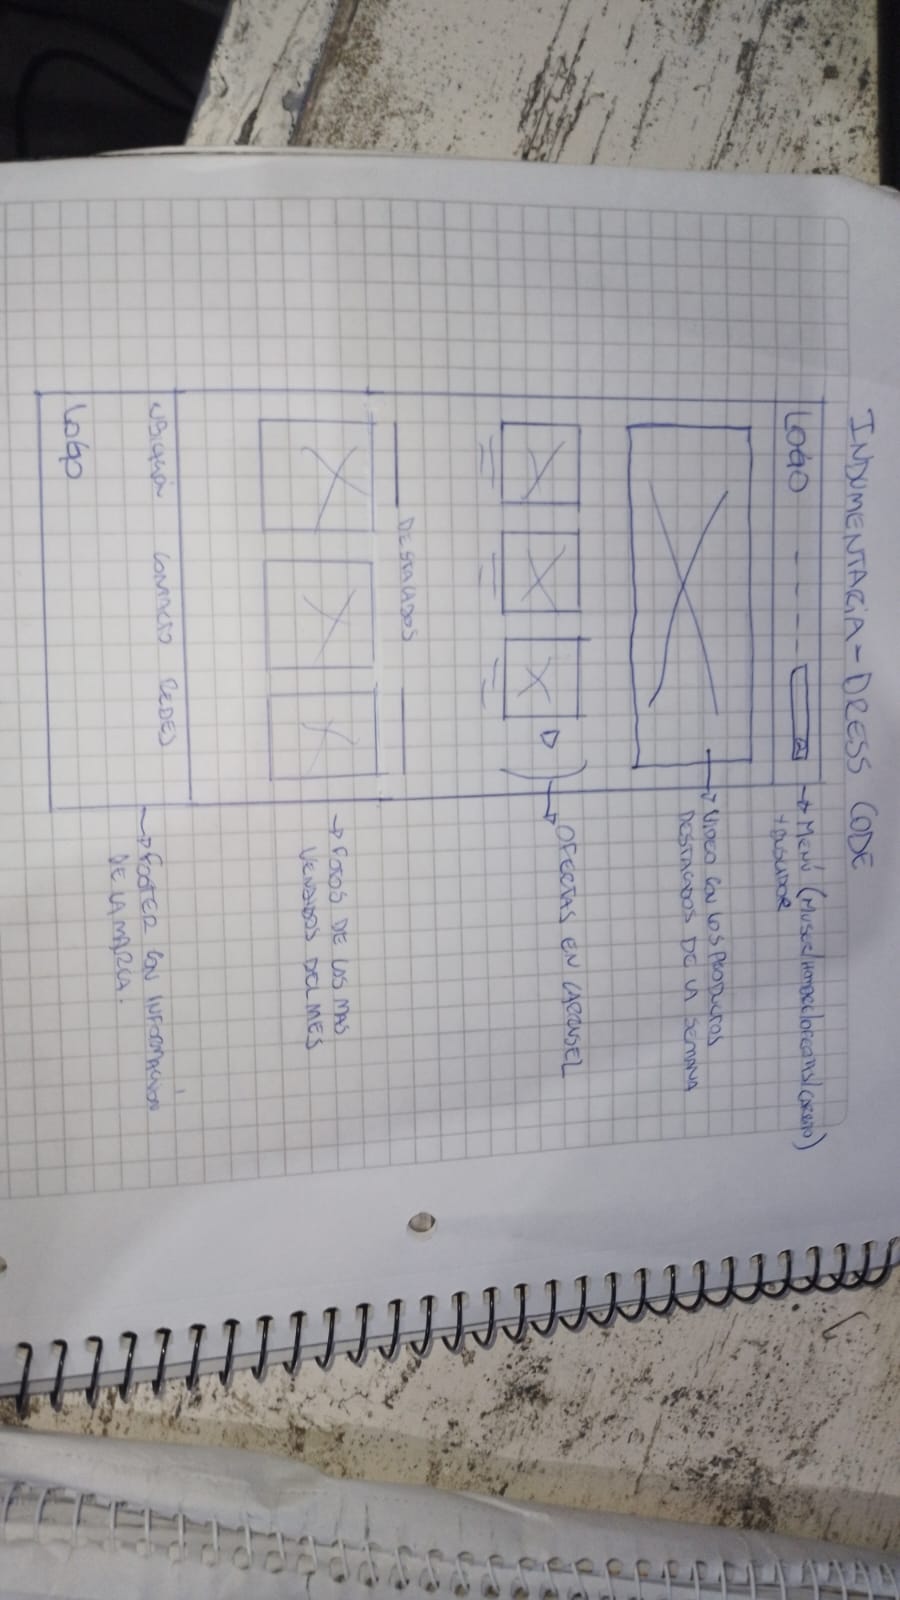 INDUMENTARIA - DRESS CODE
LOGO
→ MENÚ (MUJER/HOMBRE/OFERTAS/CARRITO)
+ BUSCADOR
→ VIDEO CON LOS PRODUCTOS
DESTACADOS DE LA SEMANA
→ OFERTAS EN CAROUSEL
DESTACADOS
→ FOTOS DE LOS MAS
VENDIDOS DEL MES
CONTACTO REDES
→ FOOTER CON INFORMACIÓN
DE LA MARCA.
LOGO